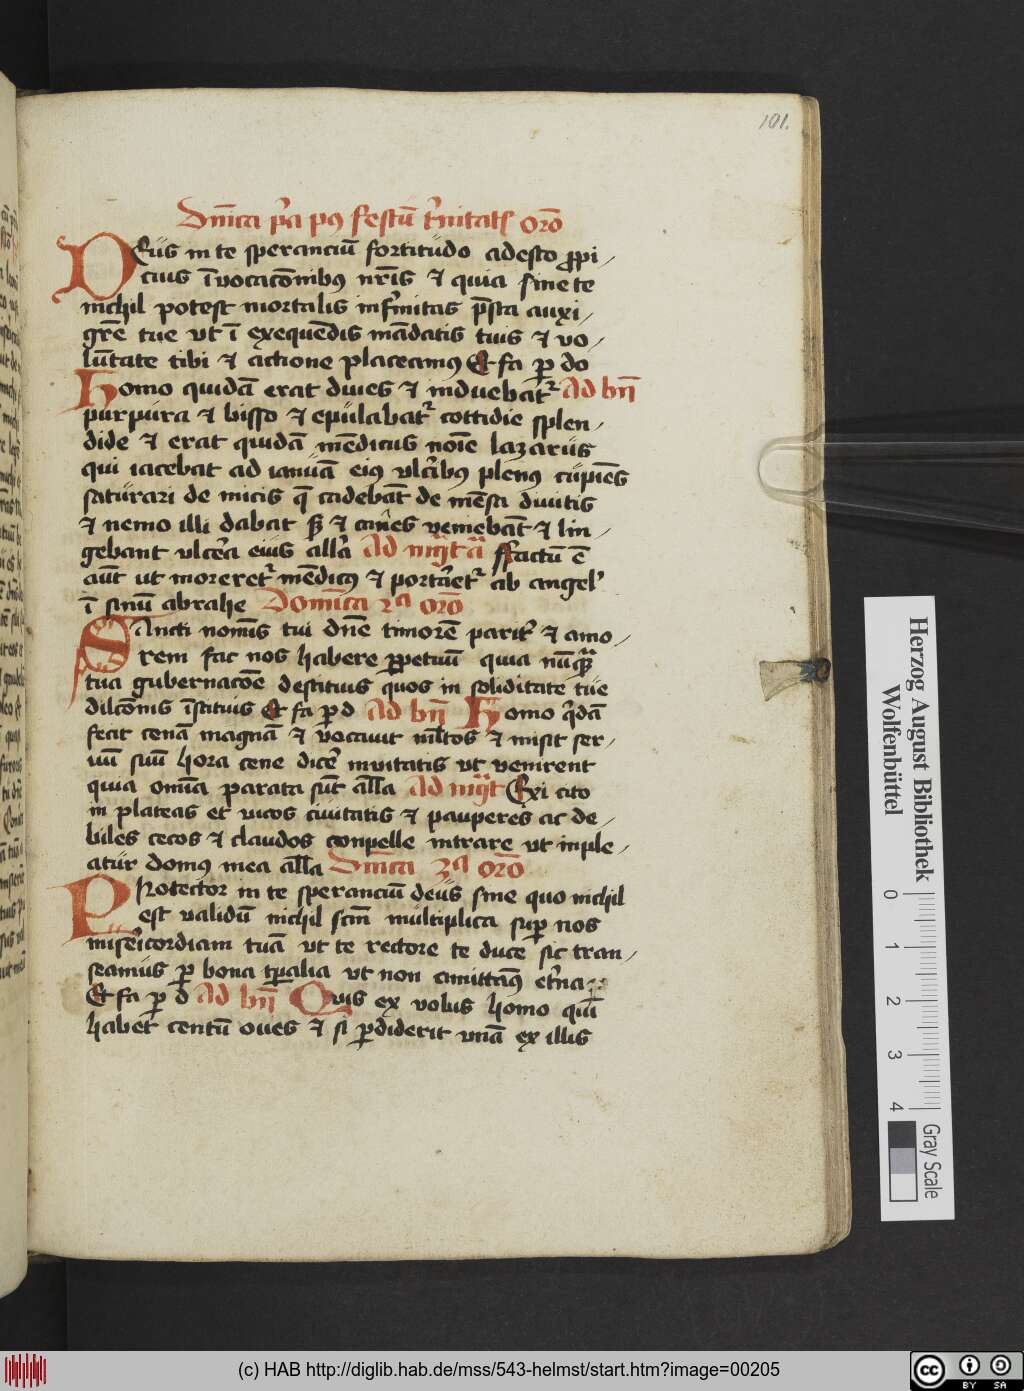 101.
Dn̄ica p̄a pꝰ festū t̓nitatꝭ or̄o
DEus in te speranciū fortitudo adesto ꝓpi/
cius īvocac̄onibꝰ nr̄is ⁊ quia sine te
nichil potest mortalis infirmitas p̄sta auxi/
gr̄e tue vt ī exequēdis mādatis tuis ⁊ vo/
lūtate tibi ⁊ actione placeamꝰ Et fa ꝑ do
Homo quidā erat diues ⁊ induebāt̓ Ad bn̄
purpura ⁊ bisso ⁊ epulabat̓ cottidie splen/
dide ⁊ erat quidā mēdicus noīe lazarus
qui iacebat ad ianuā eiꝰ vlc̓ibꝰ plenꝰ cupiēs
saturari de micis q̄ cadebāt de mēsa diuitis
⁊ nemo illi dabat sꝫ ⁊ canes veniebāt ⁊ lin/
gebant vlc̓a eius all̓a Ad mḡtā ffactū ē
aūt ut moreret̓ mēdicꝰ ⁊ portaret̓ ab angelꝭ
ī sinū abrahe Domīca 2ᵃ or̄o
SAncti nomīs tui dn̄e timorē parit̓ ⁊ amo/
rem fac nos habere ꝑpetuū quia nūqᵃ̄
tua gubernac̄oe destituis quos in soliditate tue
dilc̄onis īstituis Et fa ꝑ d Ad bn̄ Homo q̓dā
fecit cenā magnā ⁊ vocauit ml̄tos ⁊ misit ser/
uū suū hora cene dic̓e inuitatis vt venirent
quia om̄ia parata sūt all̄a Ad mḡt Exi cito
in plateas et vicos ciuitatis ⁊ pauperes ac de/
biles cecos ⁊ claudos conpelle intrare vt inple/
atur domꝰ mea all̄a Dn̄ica 3ᵃ or̄o
PRotector in te speranciū deus sine quo nichil
est validū nichil scm̄ multiplica suꝑ nos
misericordiam tuā vt te rectore te duce sic tran/
seamus ꝑ bona tꝑalia vt non amittāꝰ et̓na
Et fa ꝑ d Ad bn̄ Quis ex vobis homo quī
habet centū oues ⁊ si ꝑdiderit vnā ex illis
Herzog August Bibliothek
Wolfenbüttel
0 1 2 3 4
Gray Scale
(c) HAB http://diglib.hab.de/mss/543-helmst/start.htm?image=00205
cc BY SA